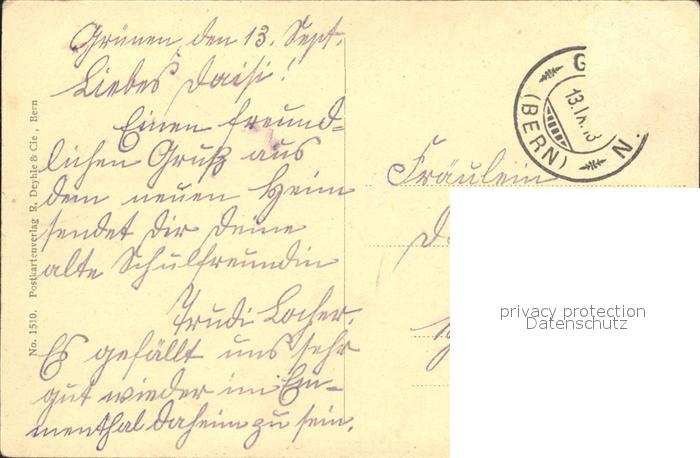 Grünen, den 13. Sept.
Liebes Daisi!
Einen freund=
lichen Gruß aus
dem neuen Heim
sendet Dir Deine
alte Schulfreundin
Trudi Locher.
Es gefällt uns sehr
gut wieder im Em=
menthal daheim zu sein.
No. 1510. Postkartenverlag R. Deyhle & Cie., Bern
G
N.
(BERN)
13.IX.
Fräulein
privacy protection
Datenschutz